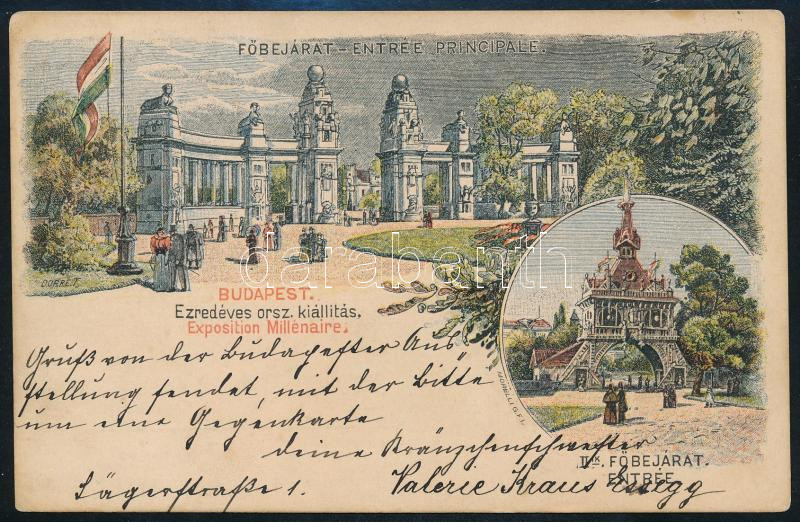 FŐBEJÁRAT – ENTRÉE PRINCIPALE.
DÖRRE T.
darabanth.com
BUDAPEST.
Ezredéves orsz. kiállítás.
Exposition Millénaire.
Gruß von der Budapester Aus-
stellung sendet, mit der Bitte
um eine Gegenkarte
deine Kränzchenschwester
Valerie Kraus
Jägerstraße 1.
MORELLI G. F.
II.IK FŐBEJÁRAT.
ENTRÉE